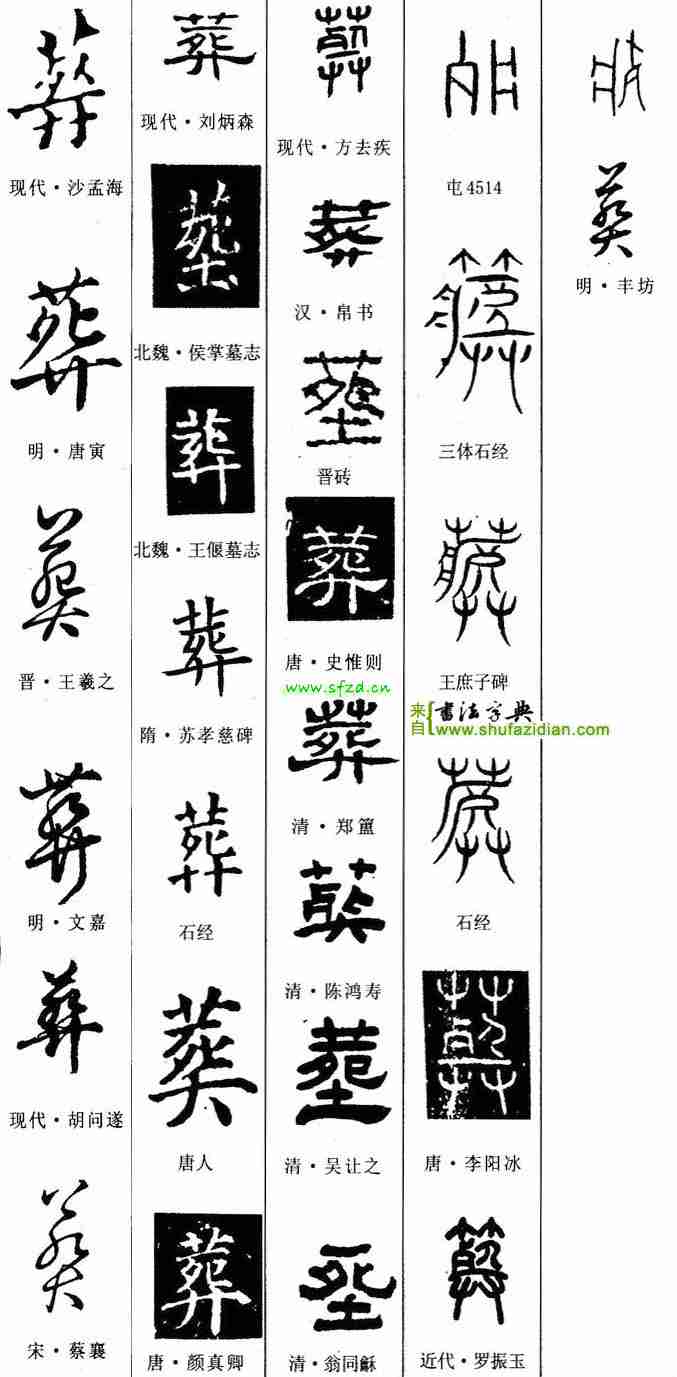 葬
现代·沙孟海
葬
明·唐寅
葬
晋·王羲之
葬
明·文嘉
葬
现代·胡问遂
葬
宋·蔡襄
葬
现代·刘炳森
塟
北魏·侯掌墓志
葬
北魏·王偃墓志
葬
隋·苏孝慈碑
葬
石经
葬
唐人
葬
唐·颜真卿
葬
现代·方去疾
葬
汉·帛书
塟
晋砖
葬
唐·史惟则
www.sfzd.cn
葬
清·郑簠
葬
清·陈鸿寿
塟
清·吴让之
清·翁同龢
屯4514
葬
三体石经
葬
王庶子碑
来自{书法字典
www.shufazidian.com
葬
石经
葬
唐·李阳冰
葬
近代·罗振玉
葬
明·丰坊